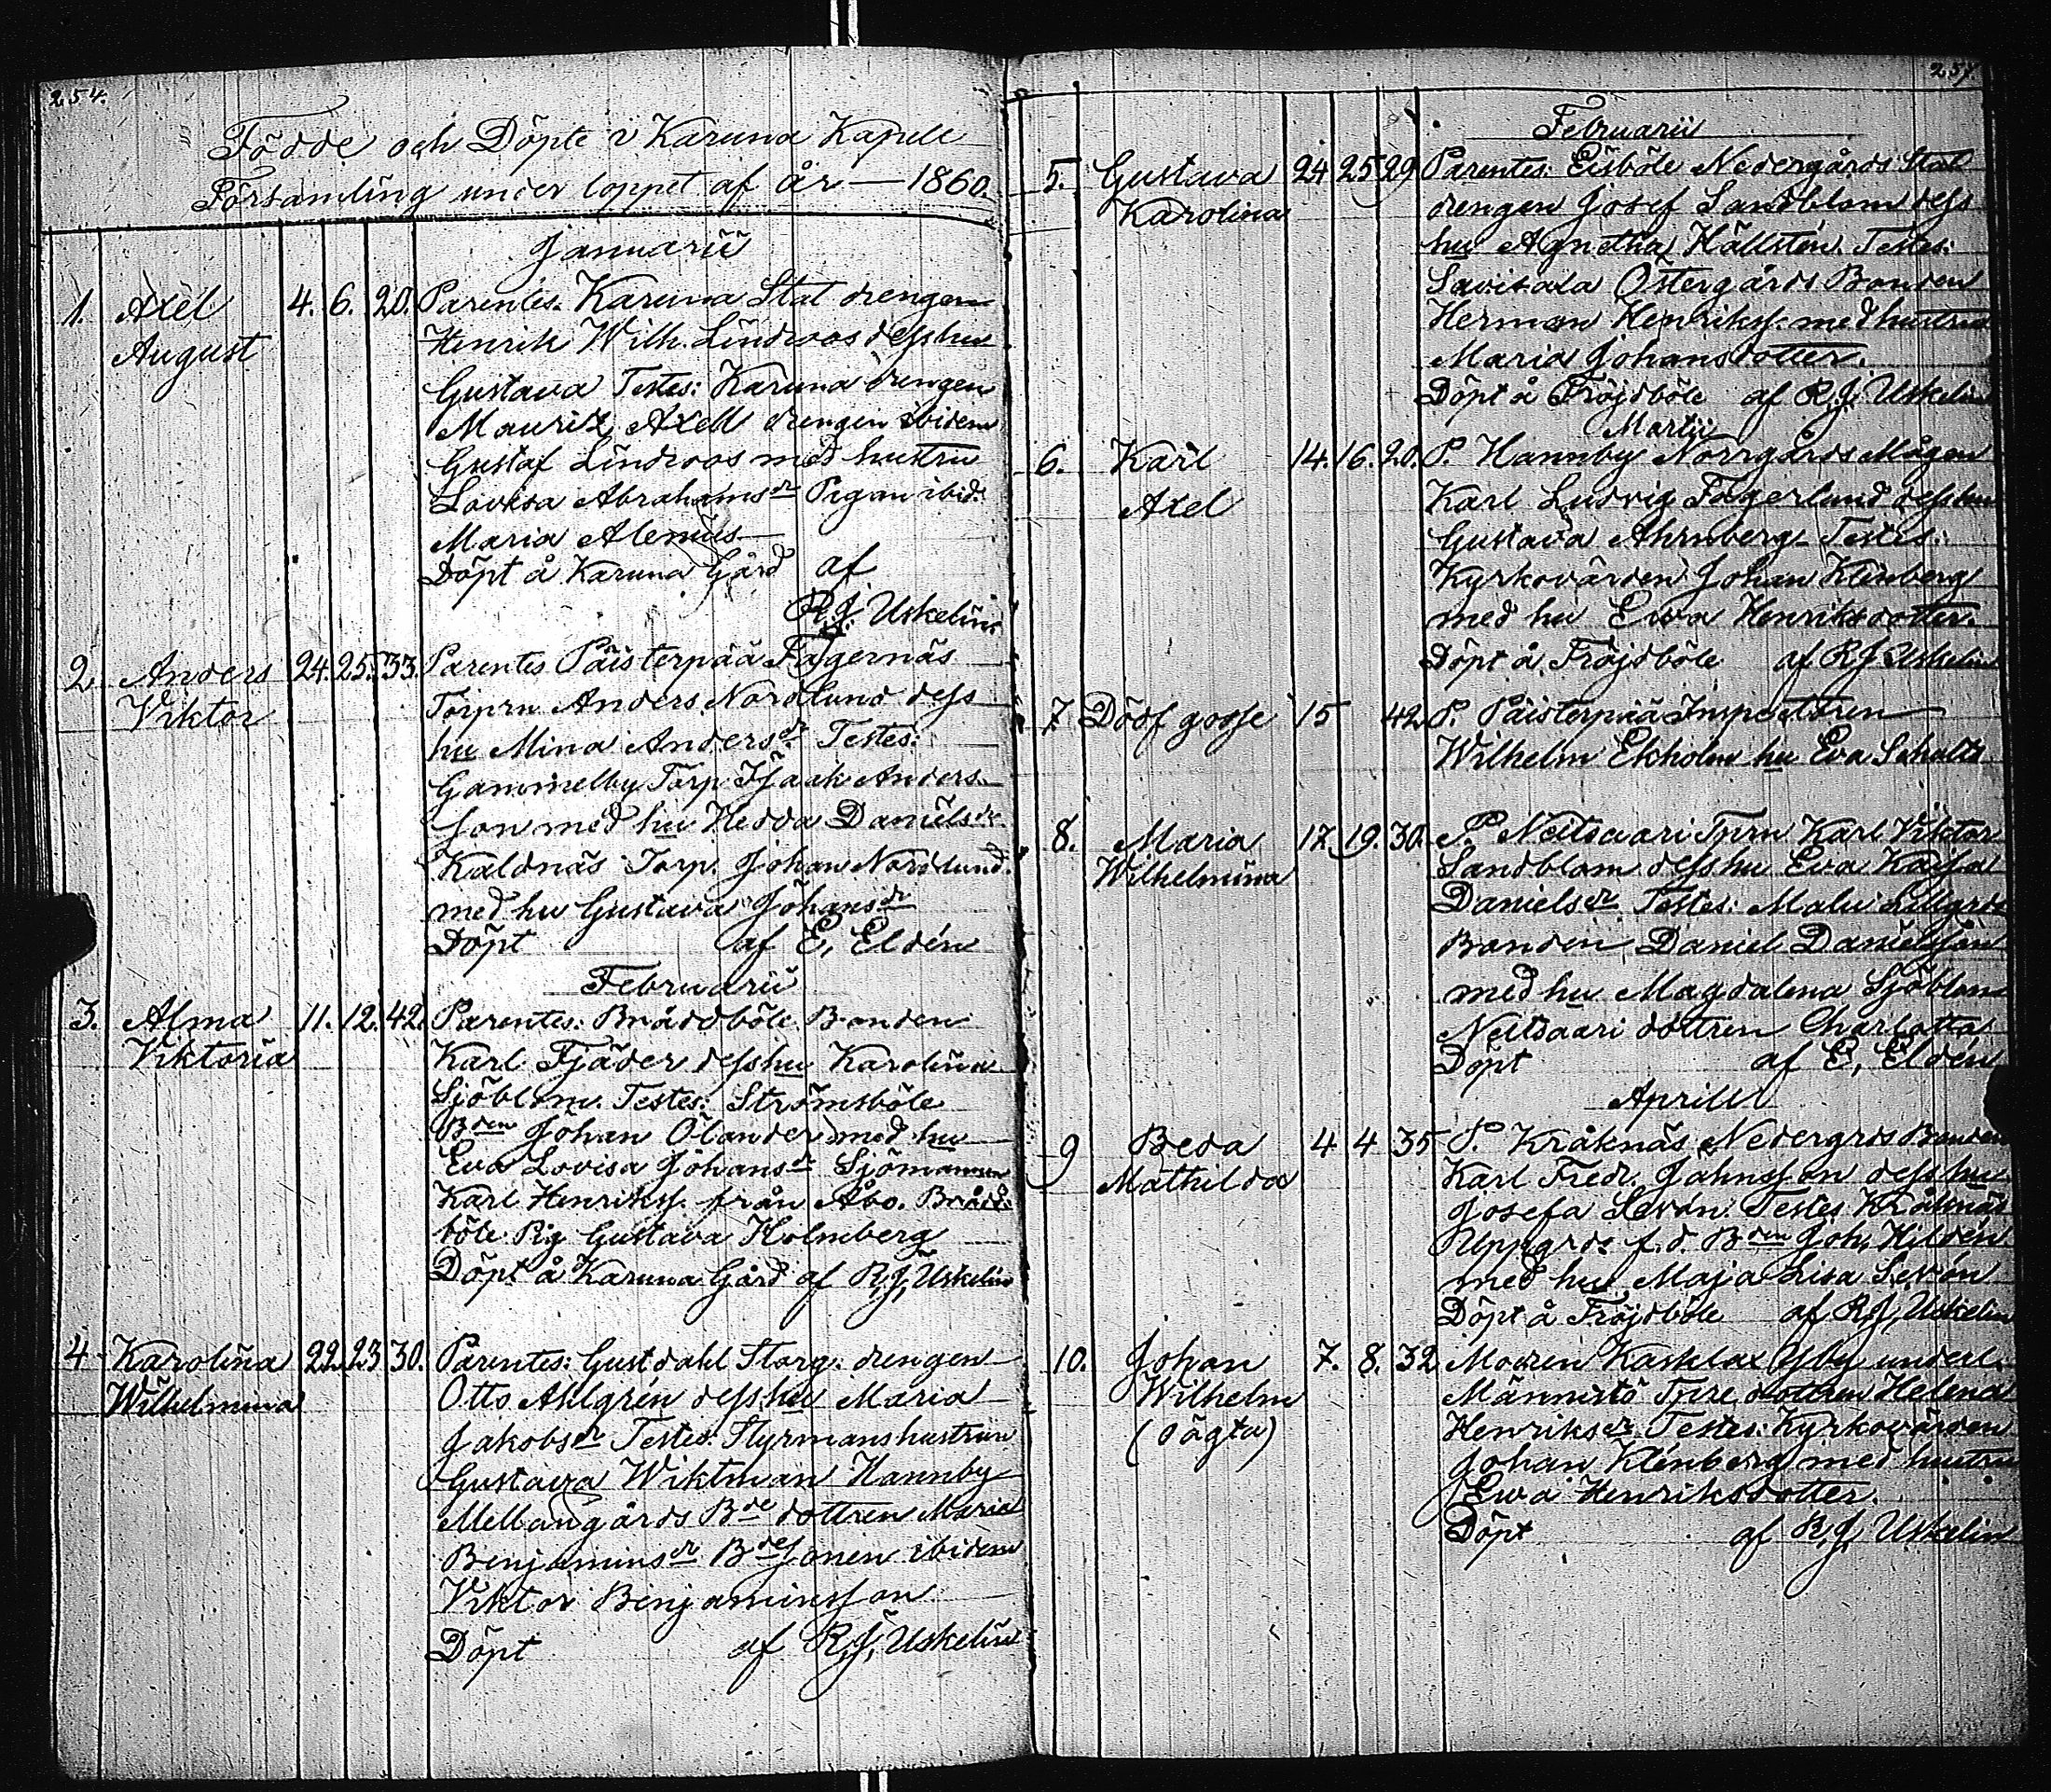 254.
Födde och Döpte i Karuna Kapell
Församling under loppet af år — 1860.
Januarii
1. Axel 4. 6. 20. Parentes. Karuna Stat drengen
August Henrik Wilh. Lindroos dess hu
Gustava Testes: Karuna drengen
Mauritz Axell drengen ibidem
Gustaf Lindroos med hustru
Lovisa Abrahamsdr Pigan ibid.
Maria Alenius
Döpt å Karuna Gård af
R. J. Uskelin.
2 Anders 24. 25. 33. Parentes Päisterpää Fagernäs
Viktor Torprn Anders Nordlund dess
hu Mina Andersdr Testes:
Gammelby Torp. Isaak Anders
son med hu Hedda Danielsdr
Kaldnäs Torp. Johan Nordlund
med hu Gustava Johansdr
Döpt af E. Eldén
Februarii
3. Alma 11. 12. 42. Parentes: Bråddböle Bonden
Viktoria Karl Fjäder dess hu Karolina
Sjöblom. Testes: Strömsböle
Bden Johan Ölander med hu
Eva Lovisa Johansdr Sjömannen
Karl Henrikss. från Åbo. Brådd
böle Pig Gustava Holmberg
Döpt å Karuna Gård af R. J. Uskelin
4 Karolina 22. 23 30. Parentes: Gustdahl Storg. drengen
Wilhelmina Otto Ahlgrén dess hu Maria
Jakobsdr Testes: Styrmans hustrun
Gustava Wiktman Hannby
Mellangårds Bde dottren Maria
Benjaminsdr Bdesonen ibidem
Viktor Benjaminsson
Döpt af R. J. Uskelin
257.
Februarii
5. Gustava 24 25 29 Parentes: Eisböle Nedergårds Stat
Karolina drengen Josef Sandblom dess
hu Agnetha Hällstén. Testes:
Östergårds Bonden
Herman Henrikss. med hustru
Maria Johansdotter.
Döpt å Fröjdböle af R. J. Uskelin
Martii
6. Karl 14. 16. 20. P. Hannby Norrgårds Mågen
Axel Karl Ludvig Fagerlund dess hu
Gustava Ahrnberg. Testes:
Kyrkovärden Johan Klénberg
med hu Ewa Henriksdotter.
Döpt å Fröjdböle af R J Uskelin
7 Dödf gosse 15 42 P. Päisterpää Inspectoren
Wilhelm Ekholm hu Eva Schultz
8. Maria 17. 19. 30. P. Neitsaari Tprn Karl Viktor
Wilhelmina Sandblom dess hu Eva Kajsa
Danielsdr Testes: Malu Lillgrds
Bonden Daniel Danielsson
med hu Magdalena Sjöblom
Neitsaari dottren Charlotta
Döpt af E. Eldén
Aprill
9 Beda 4 4 35 P. Kråknäs Nedergrds Bonden
Mathilda Karl Fredr. Jahnsson dess hu
Josefa Levón Testes Kråknäs
Uppgrds f. d. Bden Joh. Hildén
med hu Maja Lisa Levón
Döpt å Fröjdböle af R. J. Uskelin
10. Johan 7. 8. 32 Modren Kasklax Yby underl.
Wilhelm Männistö Tpre dottren Helena
(oägta) Henriksdr Testes: Kyrkovärden
Johan Klénberg med hustru
Ewa Henriksdotter.
Döpt af R. J. Uskelin